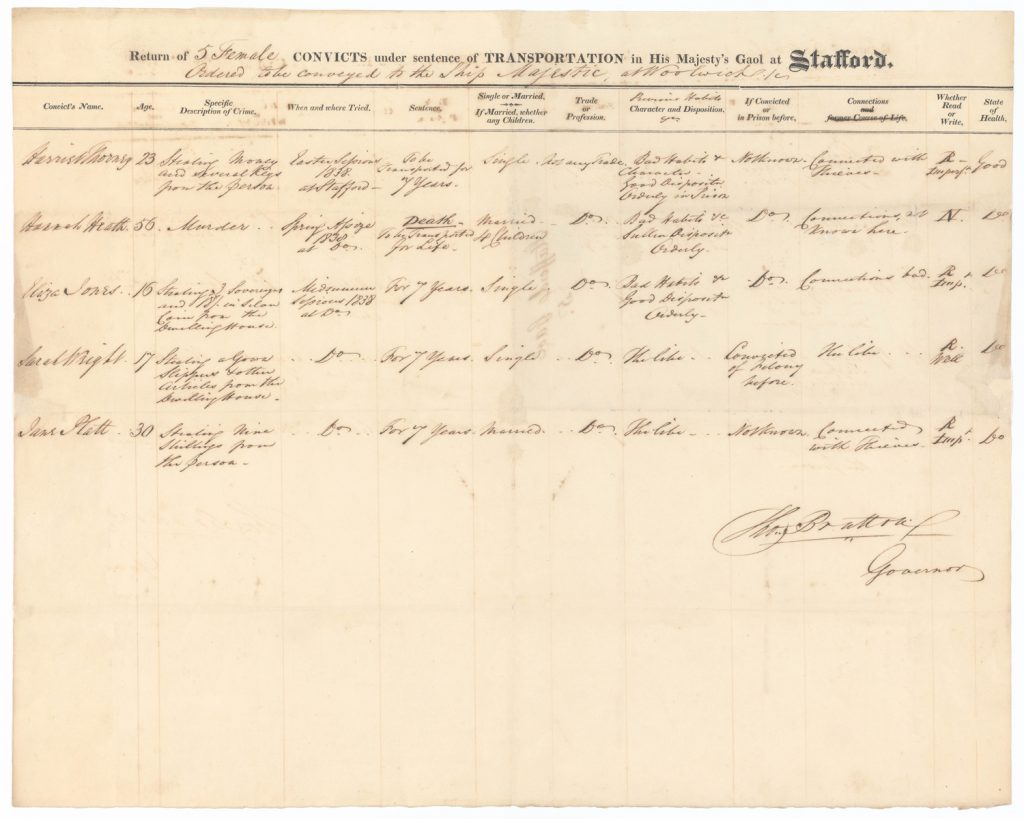 Return of 5 Female CONVICTS under sentence of TRANSPORTATION in His Majesty's Gaol at Stafford.
Ordered to be conveyed to the Ship Majestic, at Woolwich &c
Convict's Name.
Age.
Specific
Description of Crime.
When and where Tried.
Sentence.
Single or Married,
If Married, whether
any Children.
Trade
or
Profession.
Previous Habits
Character and Disposition.
&c
If Convicted
or
in Prison before.
Connections
and
former Course of Life.
Whether
Read
or
Write.
State
of
Health.
Harriet 23 Stealing Money Easter Sessions To be Single Not any Trade Bad Habits & Not known Connected with R Good
and several Keys 1838 Transported for Character Thieves Imperft
from the Person at Stafford 7 Years. Good Disposition
Orderly in Prison
Hannah Heath 56 Murder Spring Assize Death Married Do Bad Habits &c Do Connections not N. Do
1838 To be Transported 4 Children Sullen Disposition known here.
at Do for Life. Orderly.
Eliza Jones 16 Stealing Sovereigns Midsummer For 7 Years. Single Do Bad Habits &c Do Connections bad. R Do
and in Silver Sessions 1838 Good Disposition Imp.t
Coin from the at Do Orderly
Dwelling House.
Sarah Wright 17 Stealing a Gown Do For 7 Years Single Do The like Convicted The like R Do
Slippers & other of Felony Well
Articles from the before.
Dwelling House
Jane Platt 30 Stealing Nine Do For 7 Years Married Do The like Not known Connected R Do
Shillings from with Thieves Imp.t
the Person
Thos Brutton
Governor